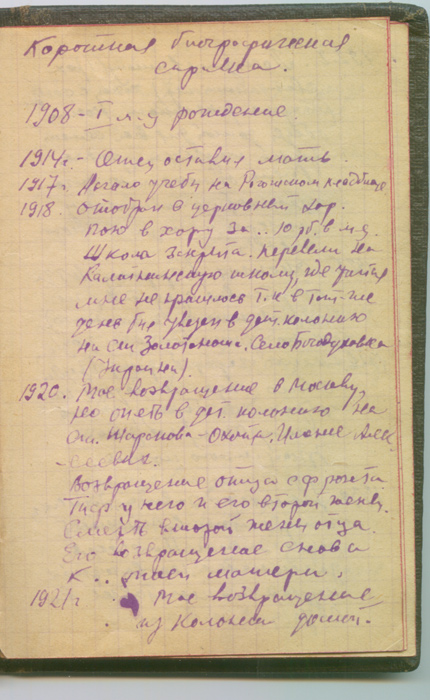 Короткая биографическая
справка.
1908 - I м-ц рождение.
1914г. - Отец оставил мать.
1917г. Начало учебы на Рогожском кладбище
1918. отобран в церковный хор.
пою в хору за .. 10 рб. в м-ц.
Школа закрыта. перевели на
Калатинскую школу, где учится
мне не пришлось т.к. в тот-же
день был увезен в дет. колонию
на ст. Золотоноша. Село Богодуховка
(Украина).
1920. Мое возвращение в Москву,
но опять в дет. колонию на
ст. Шарапова-Охота,
Возвращение отца с фронта
Тиф у него и его второй жены.
Смерть второй жены отца.
Его возвращение снова
к .. моей матери.
1921г. Мое возвращение
из колонии домой.